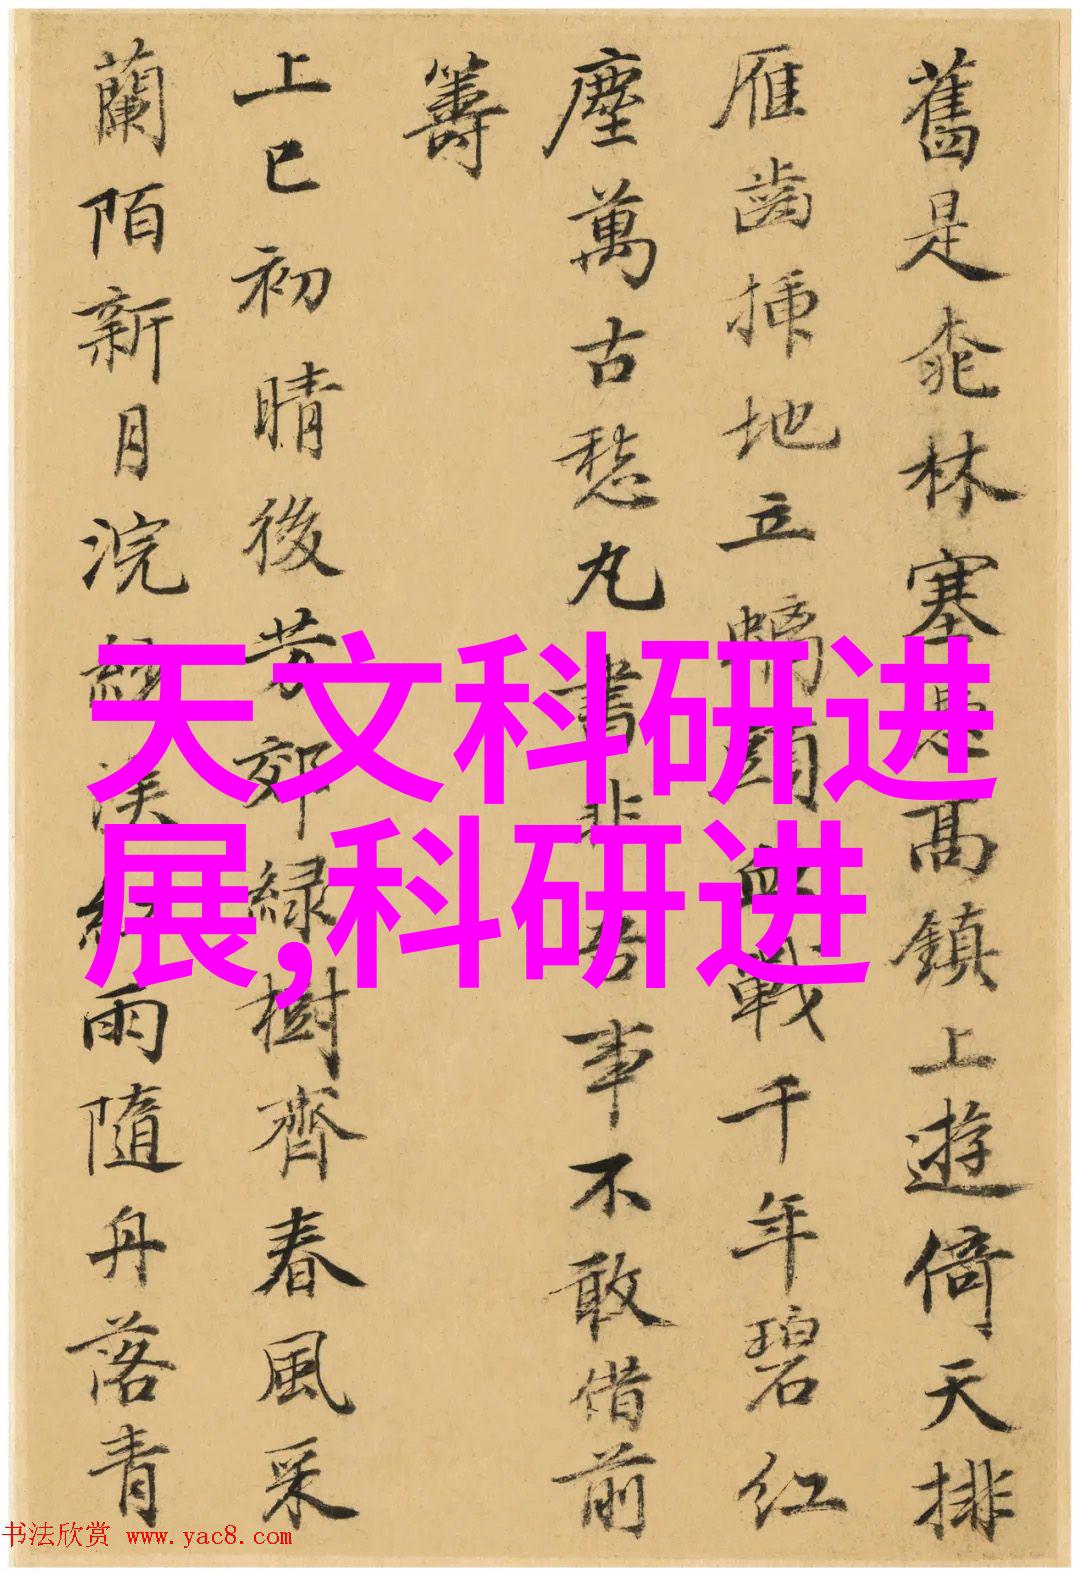 舊是桃林塞思高鎮上遊倚天排
雁齒插地立螭頭血戰千年碧紅
塵萬古愁丸書非吾事不敢借前
籌
上巳初晴後芳郊綠樹齊春風采
蘭陌新月浣紗溪紅雨隨舟落青
天文科研进
展,科研进
书法欣赏 www.yac8.com